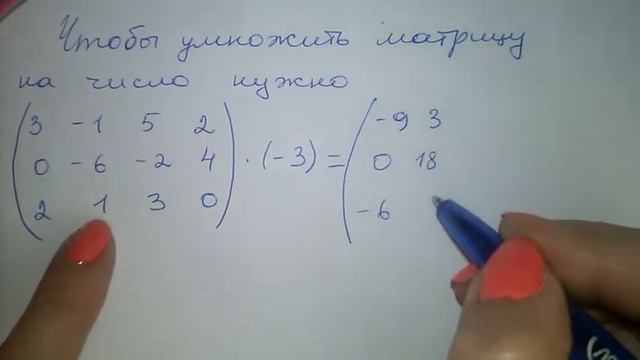 Чтобы умножить матрицу
на число нужно
3 -1 5 2
0 -6 -2 4 · (-3) =
2 1 3 0
-9 3
0 18
-6